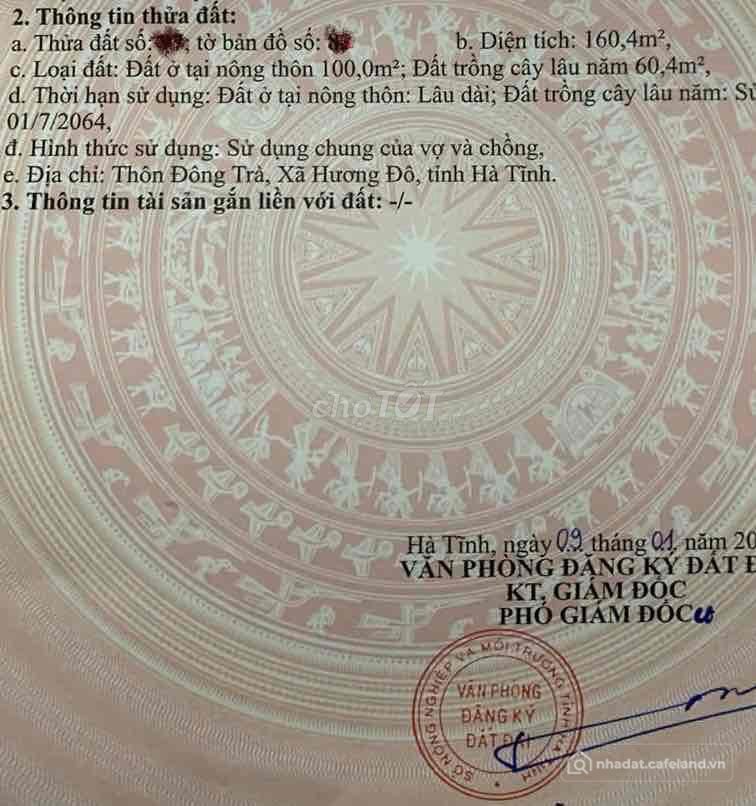 2. Thông tin thửa đất:
a. Thửa đất số: ; tờ bản đồ số: b. Diện tích: 160,4m²,
c. Loại đất: Đất ở tại nông thôn 100,0m²; Đất trồng cây lâu năm 60,4m²,
d. Thời hạn sử dụng: Đất ở tại nông thôn: Lâu dài; Đất trồng cây lâu năm: Sử
01/7/2064,
đ. Hình thức sử dụng: Sử dụng chung của vợ và chồng,
e. Địa chỉ: Thôn Đông Trà, Xã Hương Đô, tỉnh Hà Tĩnh.
3. Thông tin tài sản gắn liền với đất: -/-
chợTỐT
Hà Tĩnh, ngày 09 tháng 01 năm 20
VĂN PHÒNG ĐĂNG KÝ ĐẤT Đ
KT. GIÁM ĐỐC
PHÓ GIÁM ĐỐC
SỞ NÔNG NGHIỆP VÀ MÔI TRƯỜNG TỈNH HÀ TĨNH
VĂN PHÒNG
ĐĂNG KÝ
ĐẤT ĐAI
nhadat.cafeland.vn